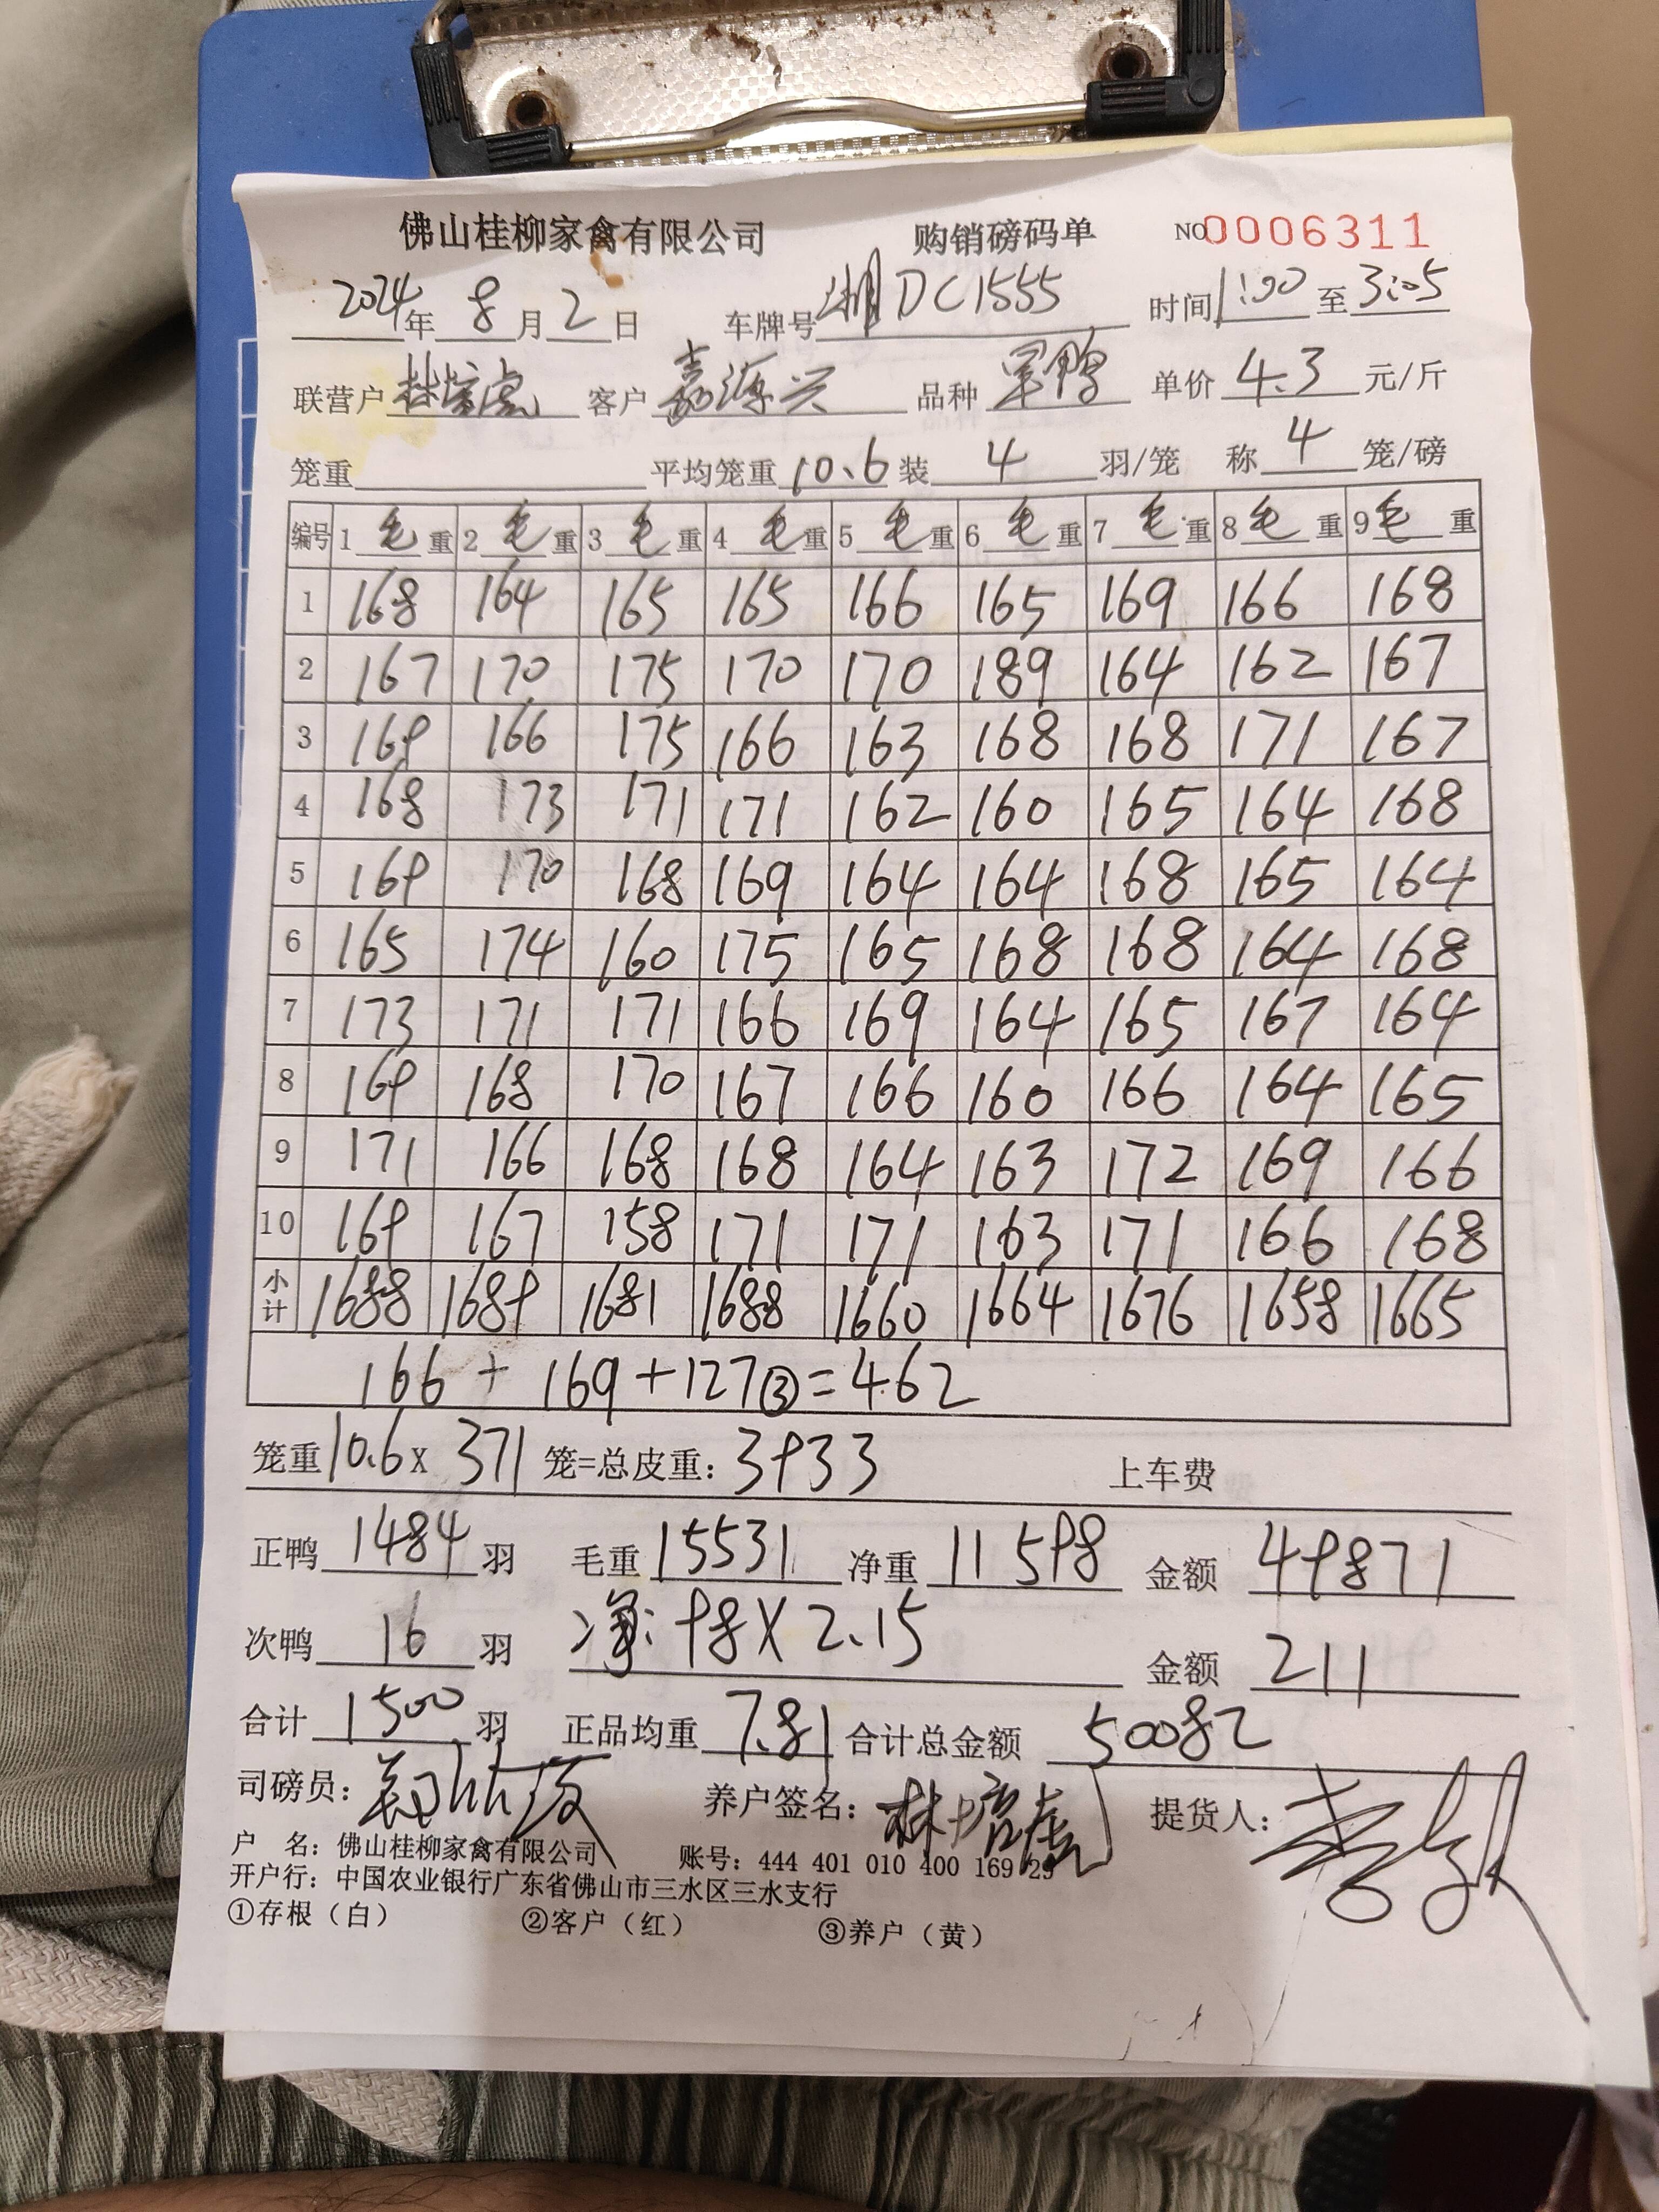 佛山桂柳家禽有限公司 购销磅码单 NO 0006311
2024年 8月2日 车牌号 湘DC1555 时间 1:00 至 3:05
联营户 林培虎 客户 嘉源兴 品种 军鸭 单价 4.3 元/斤
笼重 平均笼重 10.6 装 4 羽/笼 称 4 笼/磅
编号 1 毛 重 2 毛 重 3 毛 重 4 毛 重 5 毛 重 6 毛 重 7 毛 重 8 毛 重 9 毛 重
1 168 164 165 165 166 165 169 166 168
2 167 170 175 170 170 189 164 162 167
3 169 166 175 166 163 168 168 171 167
4 168 173 171 171 162 160 165 164 168
5 169 170 168 169 164 164 168 165 164
6 165 174 160 175 165 168 168 164 168
7 173 171 171 166 169 164 165 167 164
8 169 168 170 167 166 160 166 164 165
9 171 166 168 168 164 163 172 169 166
10 169 167 158 171 171 163 171 166 168
小计 1688 1689 1681 1688 1660 1664 1676 1658 1665
166 + 169 + 127③ = 462
笼重 10.6 x 371 笼=总皮重: 3933 上车费
正鸭 1484 羽 毛重 15531 净重 11598 金额 49871
次鸭 16 羽 净: 98 X 2.15 金额 211
合计 1500 羽 正品均重 7.81 合计总金额 50082
司磅员: 养户签名: 林培虎 提货人:
户 名: 佛山桂柳家禽有限公司 账号: 444 401 010 400 169 29
开户行: 中国农业银行广东省佛山市三水区三水支行
①存根（白） ②客户（红） ③养户（黄）